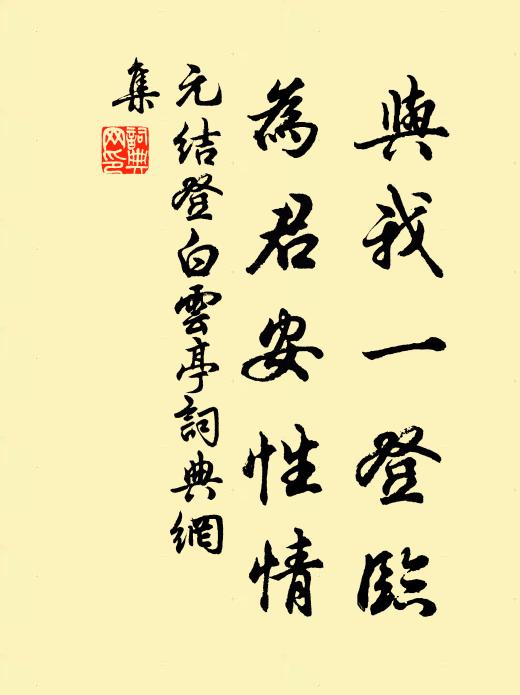 與我一登臨
為君安性情
元結登白雲亭詞典網
集
詞典
网印